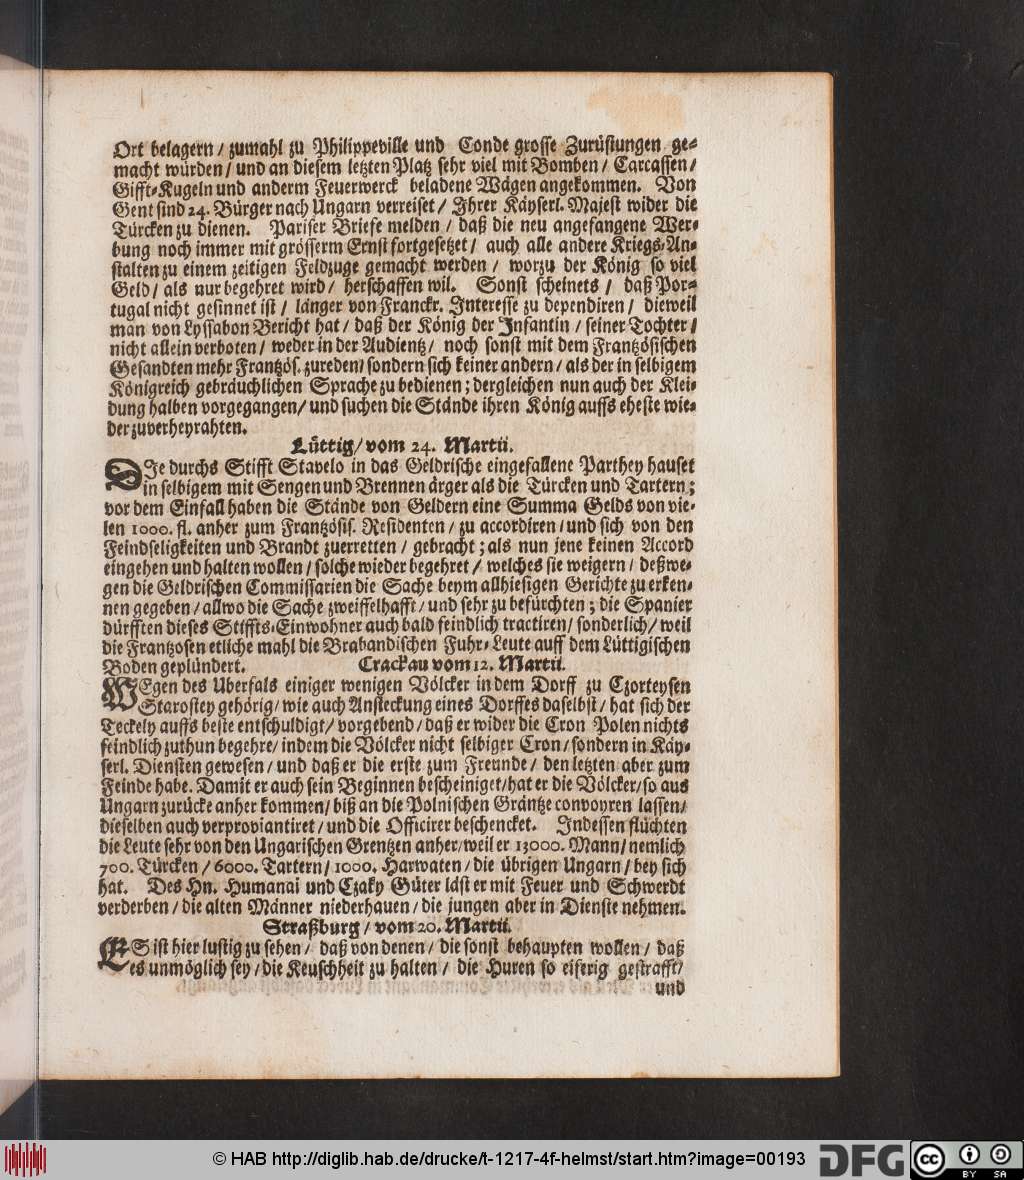 Ort belagern / zumahl zu Philippeville und Conde grosse Zurüstungen ge-
macht würden / und an diesem letzten Platz sehr viel mit Bomben / Carcassen /
Gifft-Kugeln und anderm Feuerwerck beladene Wägen angekommen. Von
Gent sind 24. Bürger nach Ungarn verreiset / Ihrer Käyserl. Majest wider die
Türcken zu dienen. Pariser Briefe melden / daß die neu angefangene Wer-
bung noch immer mit grösserm Ernst fortgesetzet / auch alle andere Kriegs-An-
stalten zu einem zeitigen Feldzuge gemacht werden / worzu der König so viel
Geld / als nur begehret wird / herschaffen wil. Sonst scheinets / daß Por-
tugal nicht gesinnet ist / länger von Franckr. Interesse zu dependiren / dieweil
man von Lyssabon Bericht hat / daß der König der Infantin / seiner Tochter /
nicht allein verboten / weder in der Audientz / noch sonst mit dem Frantzösischen
Gesandten mehr Frantzös. zureden / sondern sich keiner andern / als der in selbigem
Königreich gebräuchlichen Sprache zu bedienen ; dergleichen nun auch der Klei-
dung halben vorgegangen / und suchen die Stände ihren König auffs eheste wie-
der zuverheyrahten.
Lüttig / vom 24. Martii.
DIe durchs Stifft Stavelo in das Geldrische eingefallene Parthey hauset
in selbigem mit Sengen und Brennen ärger als die Türcken und Tartern ;
vor dem Einfall haben die Stände von Geldern eine Summa Gelds von vie-
len 1000. fl. anher zum Frantzösis. Residenten / zu accordiren / und sich von den
Feindseligkeiten und Brandt zuerretten / gebracht ; als nun jene keinen Accord
eingehen und halten wollen / solche wieder begehret / welches sie weigern / deßwe-
gen die Geldrischen Commissarien die Sache beym allhiesigen Gerichte zu erken-
nen gegeben / allwo die Sache zweiffelhafft / und sehr zu befürchten ; die Spanier
dürfften dieses Stiffts-Einwohner auch bald feindlich tractiren / sonderlich / weil
die Frantzosen etliche mahl die Brabandischen Fuhr-Leute auff dem Lüttigischen
Boden geplündert. Crackau vom 12. Martii.
WEgen des Uberfals einiger wenigen Völcker in dem Dorff zu Czorteysen
Starostey gehörig / wie auch Ansteckung eines Dorffes daselbst / hat sich der
Teckely auffs beste entschuldigt / vorgebend / daß er wider die Cron Polen nichts
feindlich zuthun begehre / indem die Völcker nicht selbiger Cron / sondern in Käy-
serl. Diensten gewesen / und daß er die erste zum Freunde / den letzten aber zum
Feinde habe. Damit er auch sein Beginnen bescheiniget / hat er die Völcker / so aus
Ungarn zurücke anher kommen / biß an die Polnischen Gräntze convoyren lassen /
dieselben auch verproviantiret / und die Officirer beschencket. Indessen flüchten
die Leute sehr von den Ungarischen Grentzen anher / weil er 13000. Mann / nemlich
700. Türcken / 6000. Tartern / 1000. Harwaten / die übrigen Ungarn / bey sich
hat. Des Hn. Humanai und Czaky Güter läst er mit Feuer und Schwerdt
verderben / die alten Männer niederhauen / die jungen aber in Dienste nehmen.
Straßburg / vom 20. Martii.
ES ist hier lustig zu sehen / daß von denen / die sonst behaupten wollen / daß
es unmöglich sey / die Keuschheit zu halten / die Huren so eiferig gestrafft /
und
© HAB http://diglib.hab.de/drucke/t-1217-4f-helmst/start.htm?image=00193
DFG
cc BY SA